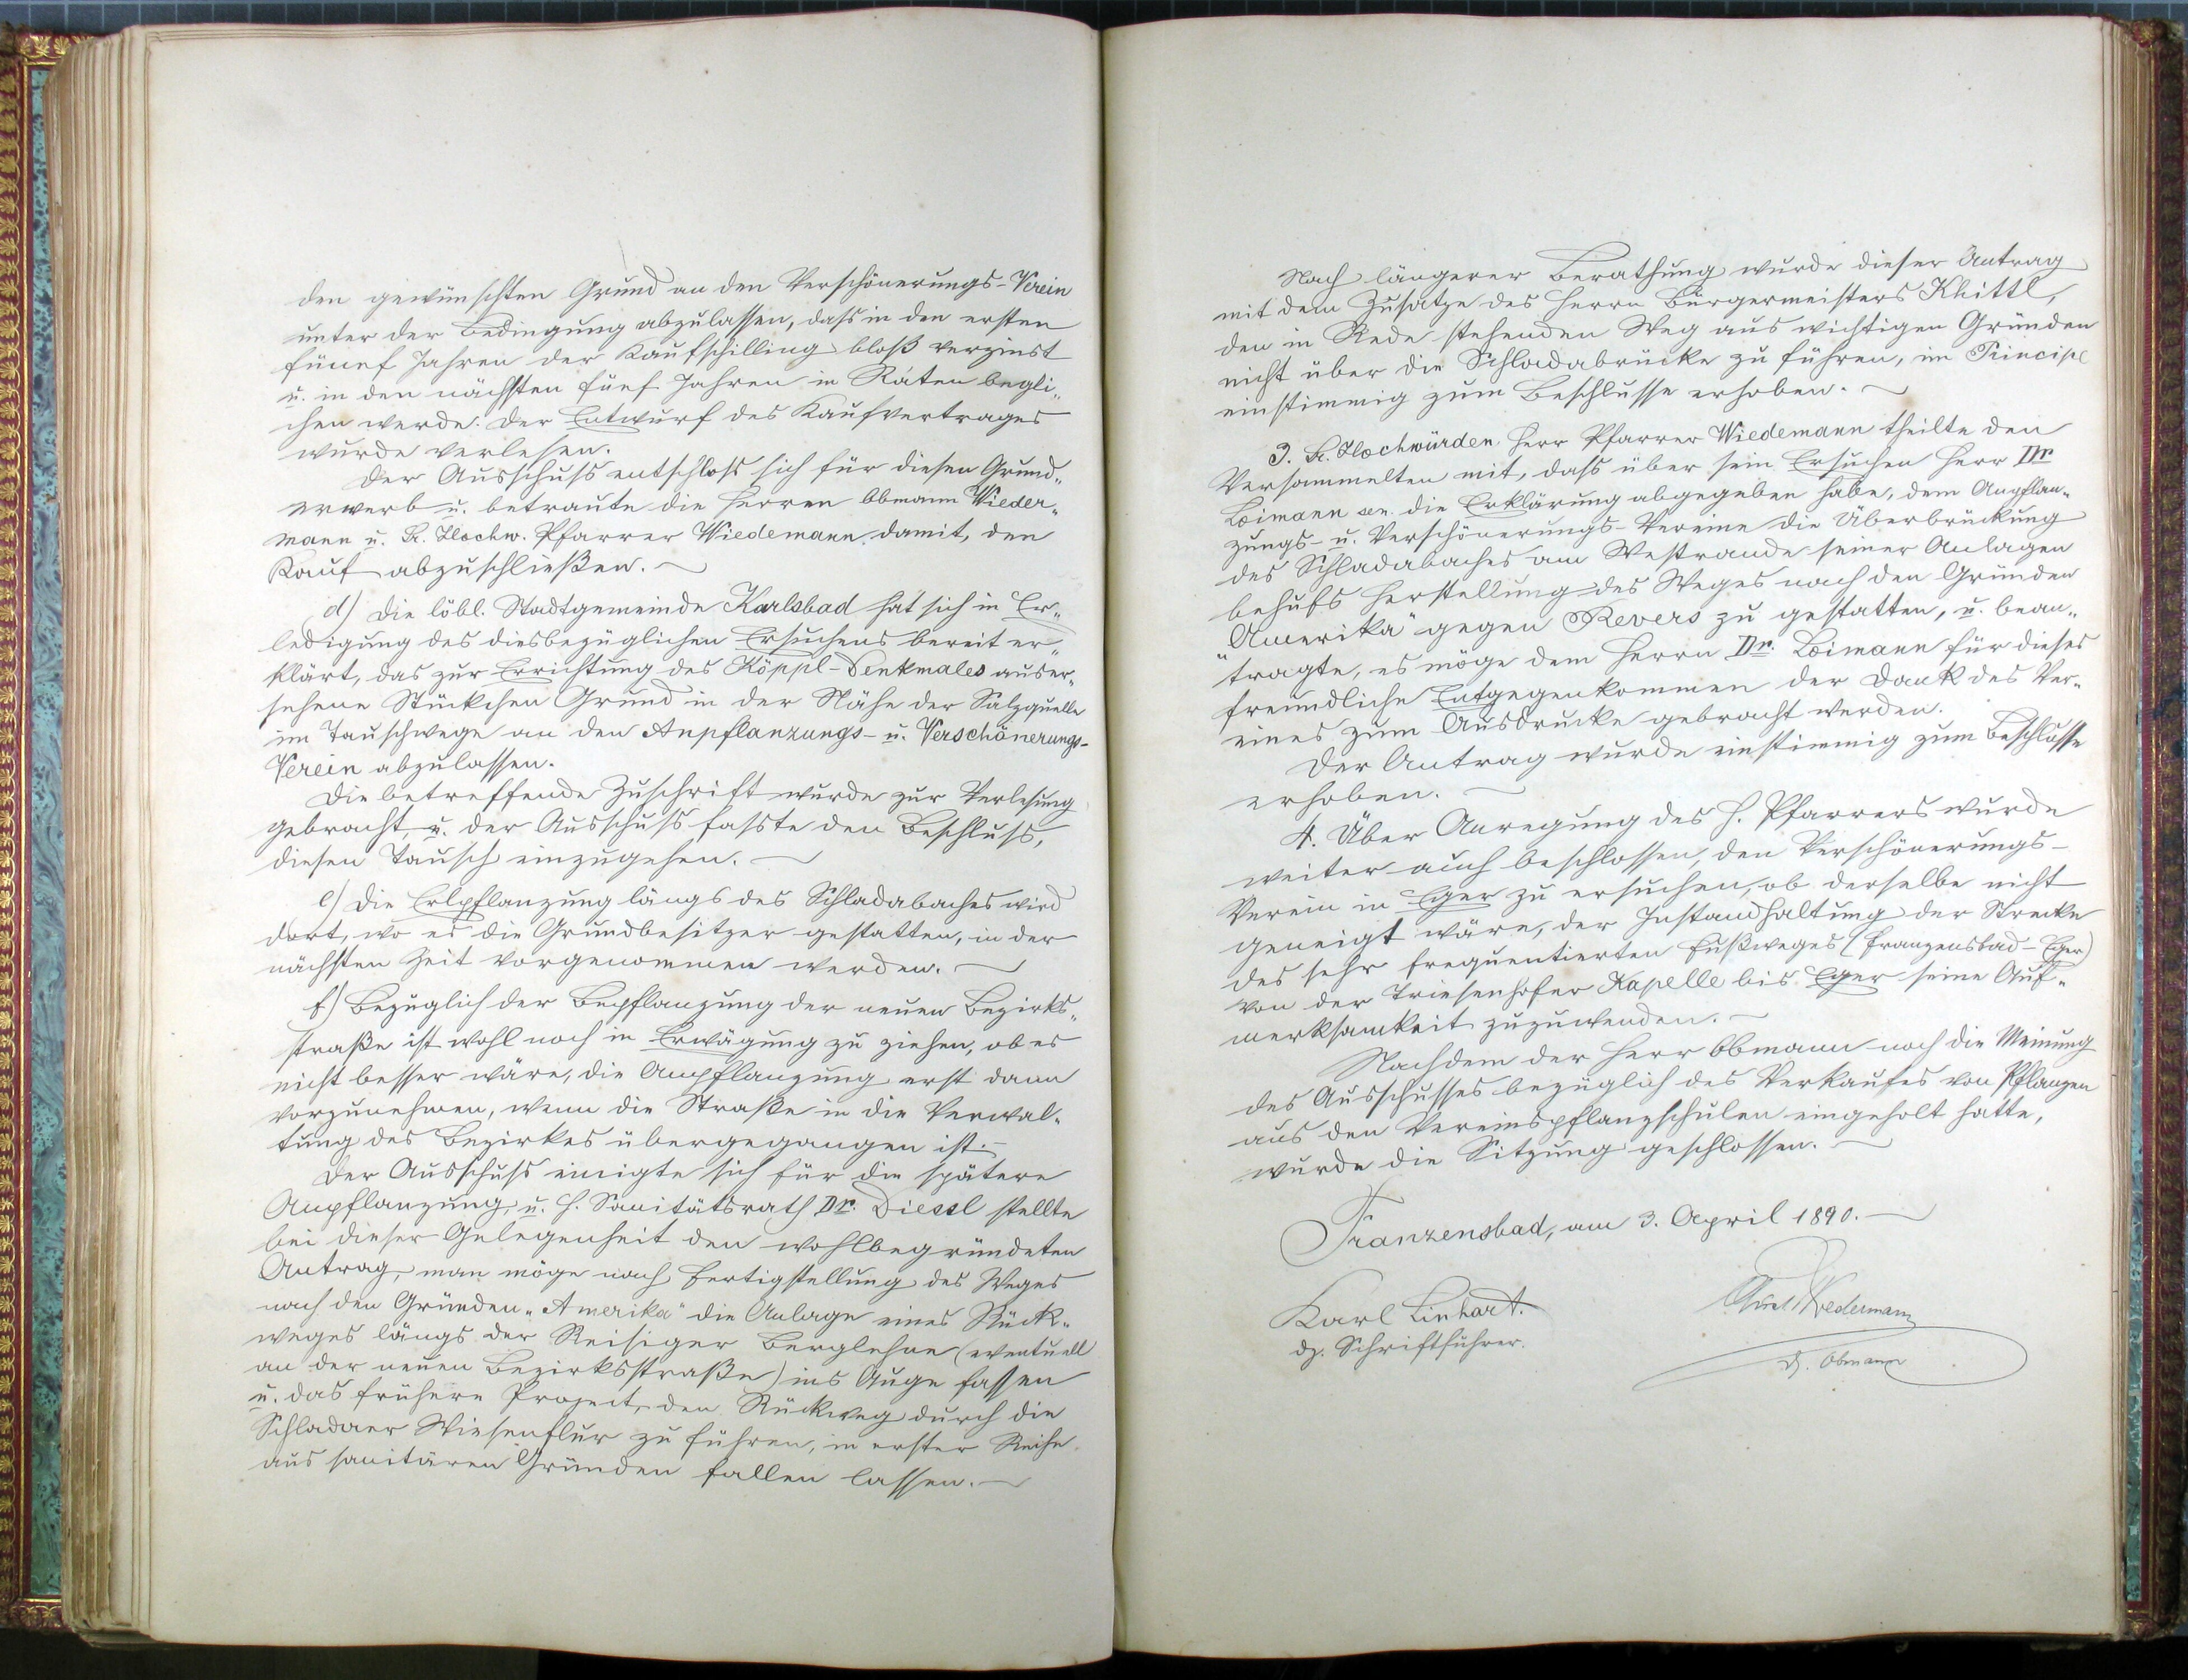 den gewünschten Grund an den Verschönerungs-Verein
unter der Bedingung abzulassen, dass in den ersten
fünf Jahren der Kaufschilling bloß verzinst
u. in den nächsten fünf Jahren in Raten begli„
chen werde. Der Entwurf des Kaufvertrages
wurde verlesen.
Der Ausschuss entschloss sich für diesen Grund„
erwerb u. betraute die Herren Obmann Wieder„
mann u. Sr. Hochw. Pfarrer Wiedemann damit, den
Kauf abzuschließen. —
d) Die löbl. Stadtgemeinde Karlsbad hat sich in Er„
ledigung des diesbezüglichen Ersuchens bereit er„
klärt, das zur Errichtung des Köppl-Denkmales auser„
sehene Stückchen Grund in der Nähe der Salzquelle
im Tauschwege an den Anpflanzungs- u. Verschönerungs-
Verein abzulassen.
Die betreffende Zuschrift wurde zur Verlesung
gebracht, u. der Ausschuss fasste den Beschluss,
diesen Tausch einzugehen. —
e) Die Erlpflanzung längs des Schladabaches wird
dort, wo es die Grundbesitzer gestatten, in der
nächsten Zeit vorgenommen werden. —
f) Bezüglich der Bepflanzung der neuen Bezirks„
straße ist wohl noch in Erwägung zu ziehen, ob es
nicht besser wäre, die Anpflanzung erst dann
vorzunehmen, wenn die Straße in die Verwal„
tung des Bezirkes übergegangen ist. —
Der Ausschuss einigte sich für die spätere
Anpflanzung, u. H. Sanitätsrath Dr. Diessl stellte
bei dieser Gelegenheit den wohlbegründeten
Antrag, man möge nach Fertigstellung des Weges
nach den Gründen „Amerika" die Anlage eines Rück„
weges längs der Reisiger Berglehne (eventuell
an der neuen Bezirksstraße) ins Auge fassen
u. das frühere Project, den Rückweg durch die
Schladaer Wiesenflur zu führen, in erster Reihe
aus sanitären Gründen fallen lassen. —
Nach längerer Berathung wurde dieser Antrag
mit dem Zusatze des Herrn Bürgermeisters Khittl,
den in Rede stehenden Weg aus wichtigen Gründen
nicht über die Schladabrücke zu führen, im Principe
einstimmig zum Beschlusse erhoben. —
3. Sr. Hochwürden Herr Pfarrer Wiedemann theilte den
Versammelten mit, dass über sein Ersuchen Herr Dr.
Loimann sen. die Erklärung abgegeben habe, dem Anpflan„
zungs- u. Verschönerungs-Vereine die Überbrückung
des Schladabaches am Westrande seiner Anlagen
behufs Herstellung des Weges nach den Gründen
„Amerika" gegen Revers zu gestatten, u. bean„
tragte, es möge dem Herrn Dr. Loimann für dieses
freundliche Entgegenkommen der Dank des Ver„
eines zum Ausdrucke gebracht werden.
Der Antrag wurde einstimmig zum Beschlusse
erhoben. —
4. Über Anregung des H. Pfarrers wurde
weiter auch beschlossen, den Verschönerungs-
Verein in Eger zu ersuchen, ob derselbe nicht
geneigt wäre, der Instandhaltung der Strecke
des sehr frequentierten Fußweges (Franzensbad-Eger)
von der Triesenhofer Kapelle bis Eger seine Auf„
merksamkeit zuzuwenden. —
Nachdem der Herr Obmann noch die Meinung
des Ausschusses bezüglich des Verkaufes von Pflanzen
aus den Vereinspflanzschulen eingeholt hatte,
wurde die Sitzung geschlossen. —
Franzensbad, am 3. April 1890. —
Karl Linhart.
dz. Schriftführer.
Wiedermann
dz. Obmann